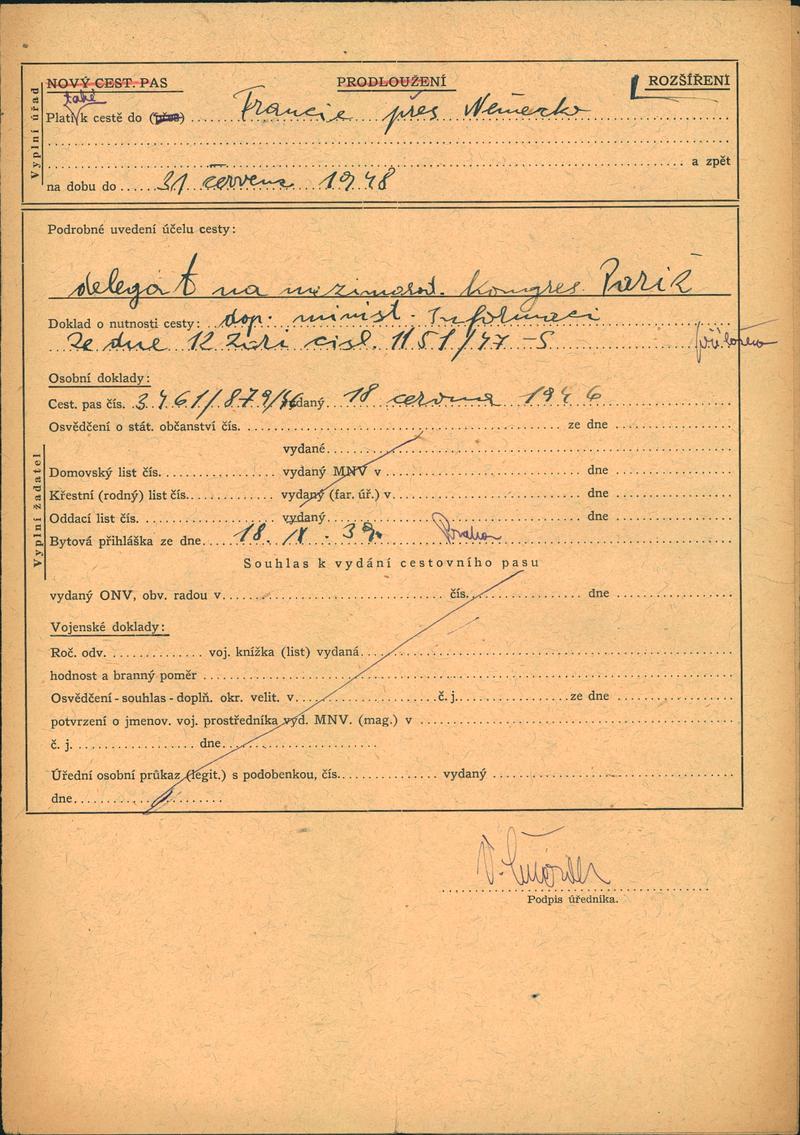 NOVÝ CEST. PAS PRODLOUŽENÍ ROZŠÍŘENÍ
také
Platí k cestě do (přes) Francie přes Německo
a zpět
na dobu do 31 července 1948
Vyplní úřad
Podrobné uvedení účelu cesty:
delegát na mezinarod. kongres Paříž
Doklad o nutnosti cesty: dop. minist. Informací
ze dne 12 září čisl. 1151/47-S
Osobní doklady:
Cest. pas čís. 3461/879/46 vydaný 18 června 1946
Osvědčení o stát. občanství čís. ze dne
vydané
Domovský list čís. vydaný MNV v dne
Křestní (rodný) list čís. vydaný (far. úř.) v dne
Oddací list čís. vydaný dne
Bytová přihláška ze dne 18. IX. 39 Praha
Vyplní žadatel
Souhlas k vydání cestovního pasu
vydaný ONV, obv. radou v čís. dne
Vojenské doklady:
Roč. odv. voj. knížka (list) vydaná
hodnost a branný poměr
Osvědčení - souhlas - doplň. okr. velit. v č. j. ze dne
potvrzení o jmenov. voj. prostředníka vyd. MNV. (mag.) v
č. j. dne
Úřední osobní průkaz (legit.) s podobenkou, čís. vydaný
dne
Podpis úředníka.